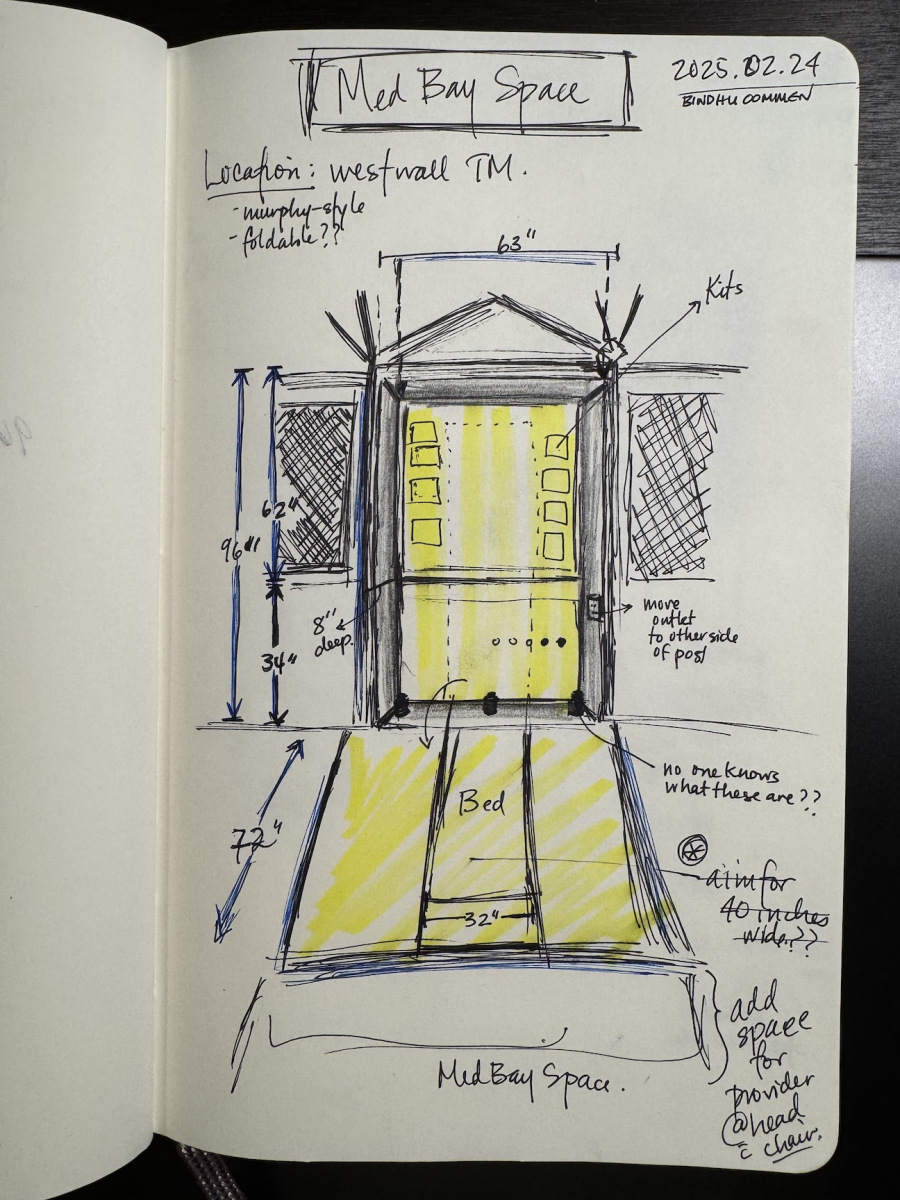 Med Bay Space
2025.02.24
BINDHU OOMMEN
Location: westwall TM.
- murphy-style
- foldable??
63"
Kits
62"
96"
8"
deep.
34"
move
outlet
to other side
of post
no one knows
what these are??
Bed
72"
32"
aim for
40 inches
wide??
add
space
for
provider
@head
c̄ chair.
MedBay Space.